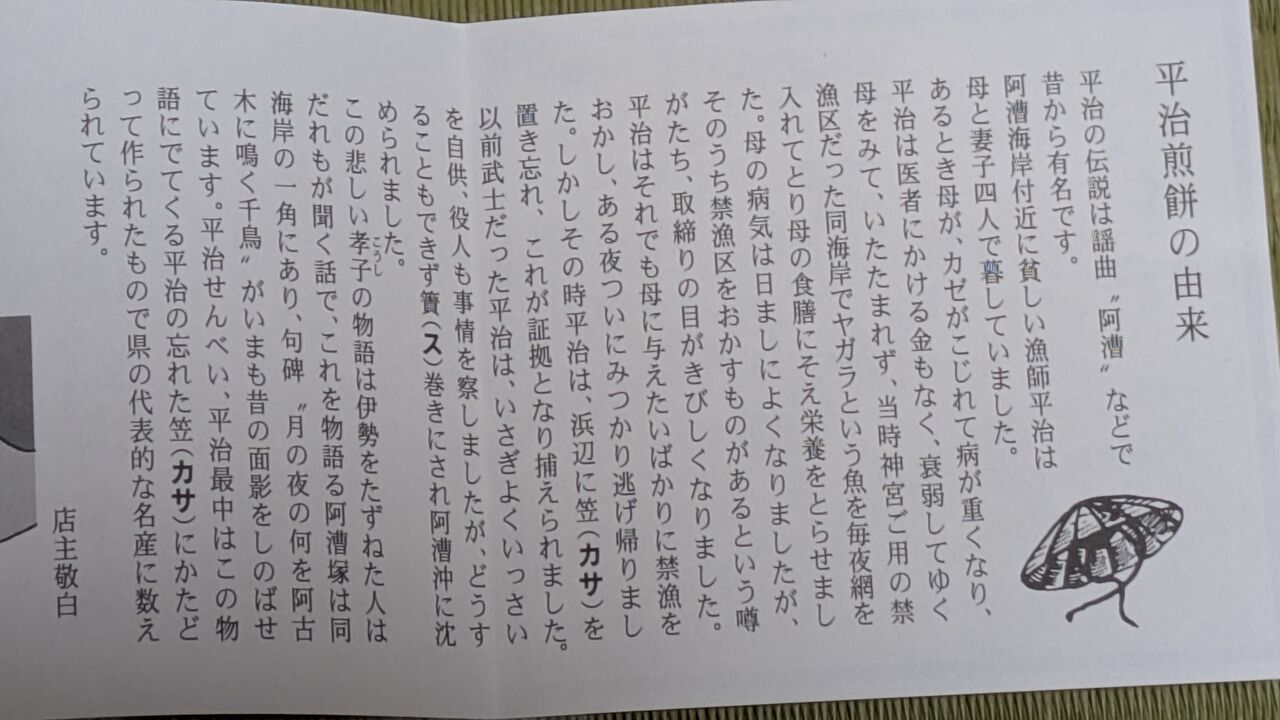 平治煎餅の由来
平治の伝説は謡曲〝阿漕〟などで
昔から有名です。
阿漕海岸付近に貧しい漁師平治は
母と妻子四人で暮していました。
あるとき母が、カゼがこじれて病が重くなり、
平治は医者にかける金もなく、衰弱してゆく
母をみて、いたたまれず、当時神宮ご用の禁
漁区だった同海岸でヤガラという魚を毎夜網を
入れてとり母の食膳にそえ栄養をとらせまし
た。母の病気は日ましによくなりましたが、
そのうち禁漁区をおかすものがあるという噂
がたち、取締りの目がきびしくなりました。
平治はそれでも母に与えたいばかりに禁漁を
おかし、ある夜ついにみつかり逃げ帰りまし
た。しかしその時平治は、浜辺に笠(カサ)を
置き忘れ、これが証拠となり捕えられました。
以前武士だった平治は、いさぎよくいっさい
を自供、役人も事情を察しましたが、どうす
ることもできず簀(ス)巻きにされ阿漕沖に沈
められました。
この悲しい孝子こうしの物語は伊勢をたずねた人は
だれもが聞く話で、これを物語る阿漕塚は同
海岸の一角にあり、句碑〝月の夜の何を阿古
木に鳴く千鳥〟がいまも昔の面影をしのばせ
ています。平治せんべい、平治最中はこの物
語にでてくる平治の忘れた笠(カサ)にかたど
って作られたもので県の代表的な名産に数え
られています。
店主敬白